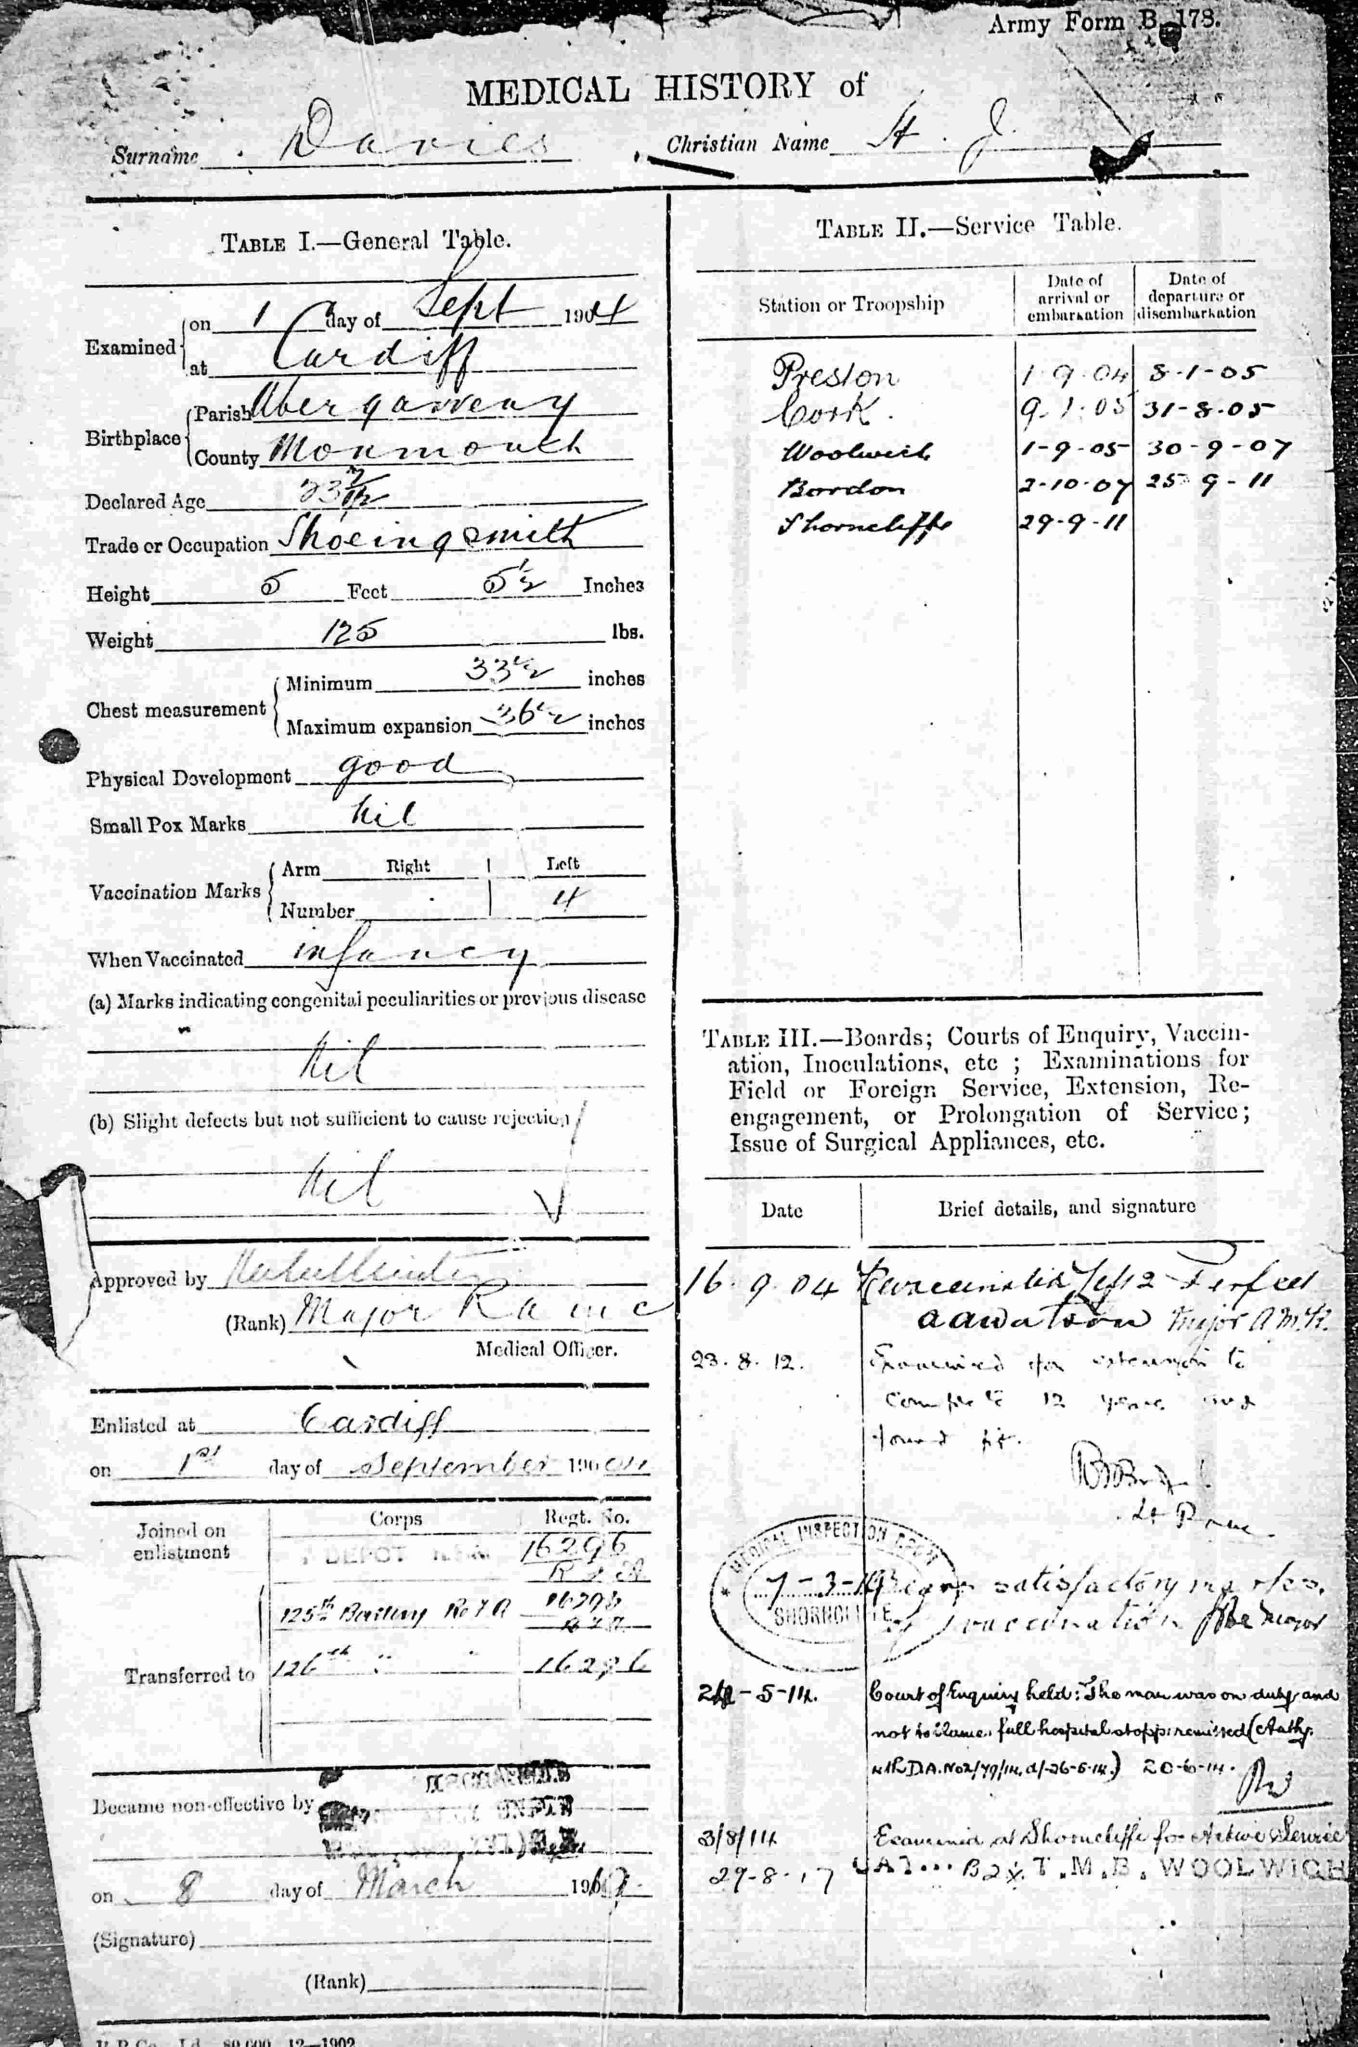 Army Form B. 178.
MEDICAL HISTORY of
Surname Davies Christian Name H. J.
TABLE I.—General Table.
Examined on 1 day of Sept 1904
at Cardiff
Birthplace Parish Abergavveny
County Monmouth
Declared Age 23 7/12
Trade or Occupation Shoeingsmith
Height 5 Feet 5½ Inches
Weight 125 lbs.
Chest measurement Minimum 33½ inches
Maximum expansion 36½ inches
Physical Development good
Small Pox Marks Nil
Vaccination Marks Arm Right Left
Number 4
When Vaccinated infancy
(a) Marks indicating congenital peculiarities or previous disease
Nil
(b) Slight defects but not sufficient to cause rejection
Nil
Approved by
(Rank) Major Ramc
Medical Officer.
Enlisted at Cardiff
on 1st day of September 1904
Corps Regt. No.
Joined on enlistment DEPOT 16296
125th Battery R.F.A 16296
Transferred to 126th " " 16296
Became non-effective by
on 8 day of March 19
(Signature)
(Rank)
TABLE II.—Service Table.
Station or Troopship Date of arrival or embarkation Date of departure or disembarkation
Preston 1-9-04 8-1-05
Cork. 9.1.05 31-8-05
Woolwich 1-9-05 30-9-07
Bordon 2-10-07 25-9-11
Shorncliffe 29-9-11
TABLE III.—Boards; Courts of Enquiry, Vaccin-
ation, Inoculations, etc ; Examinations for
Field or Foreign Service, Extension, Re-
engagement, or Prolongation of Service;
Issue of Surgical Appliances, etc.
Date Brief details, and signature
16.9.04 Left 2 Perfect
Major
23.8.12. Examined for extension to
complete 12 years and
found fit.
Lt
MEDICAL INSPECTION ROOM
7-3-19
SHORNCLIFFE
satisfactory marks
of vaccination Major
-5-14. Court of Enquiry held: The man was on duty and
not to blame. full hospital stopp: remitted (Auth:
20-6-14.
3/8/14 Examined at Shorncliffe for Active Service
29-8-17 CAT... B2 T.M.B. WOOLWICH
12—1902